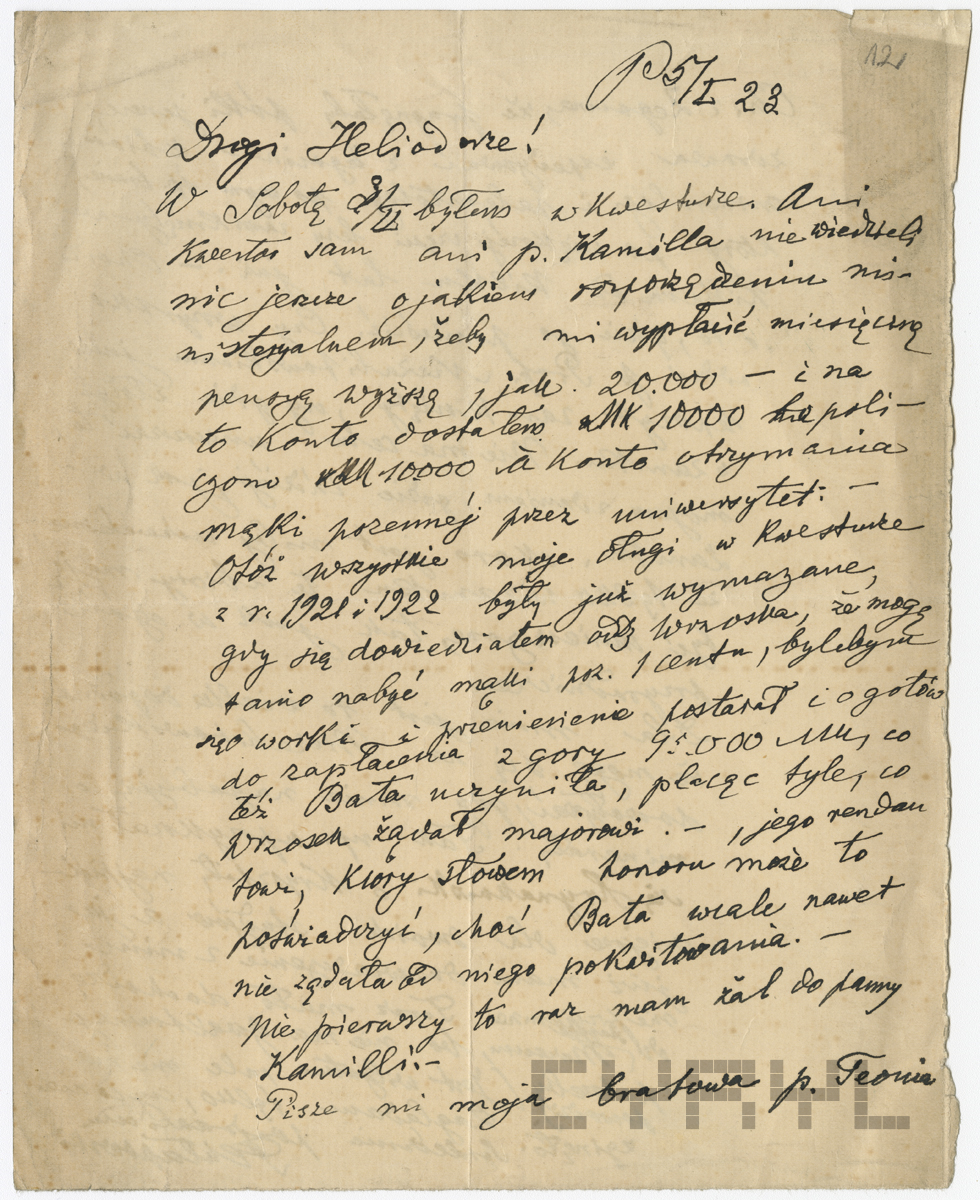 12
P 5/I 23
Drogi Heliodorze!
W Sobotę 3/II byłem w Kwesturze. Ani
Kwestor sam ani p. Kamilla nie wiedzieli
nic jeszcze o jakiem rozporządzeniu mi-
nisteryalnem, żeby mi wypłacić miesięczną
pensyę wyższą, jak. 20.000 — i na
to Konto dostałem MK 10000 poli-
czono 10000 à Konto otrzymania
mąki pszennéj przez uniwersytet. —
Otóż wszystkie moje długi w Kwesturze
z r. 1921 i 1922 były już wymazane,
gdy się dowiedziałem Wrzoska, że mogę
tanio nabyć mąki 1 centn, bylebym
się o worki i przeniesienie postarał i o gotów
do zapłacenia z gory 95.000 Mk, co
też Bała uczyniła, płacąc tyle, co
Wrzosek żądał majorowi. — , jego rendan
towi, Który słowem honoru może to
poświadczyć, choć Bała wcale nawet
nie żądała od niego pokwitowania. —
Nie pierwszy to raz mam żal do panny
Kamilli. —
Pisze mi moja bratowa p. Teonia
CHRPL